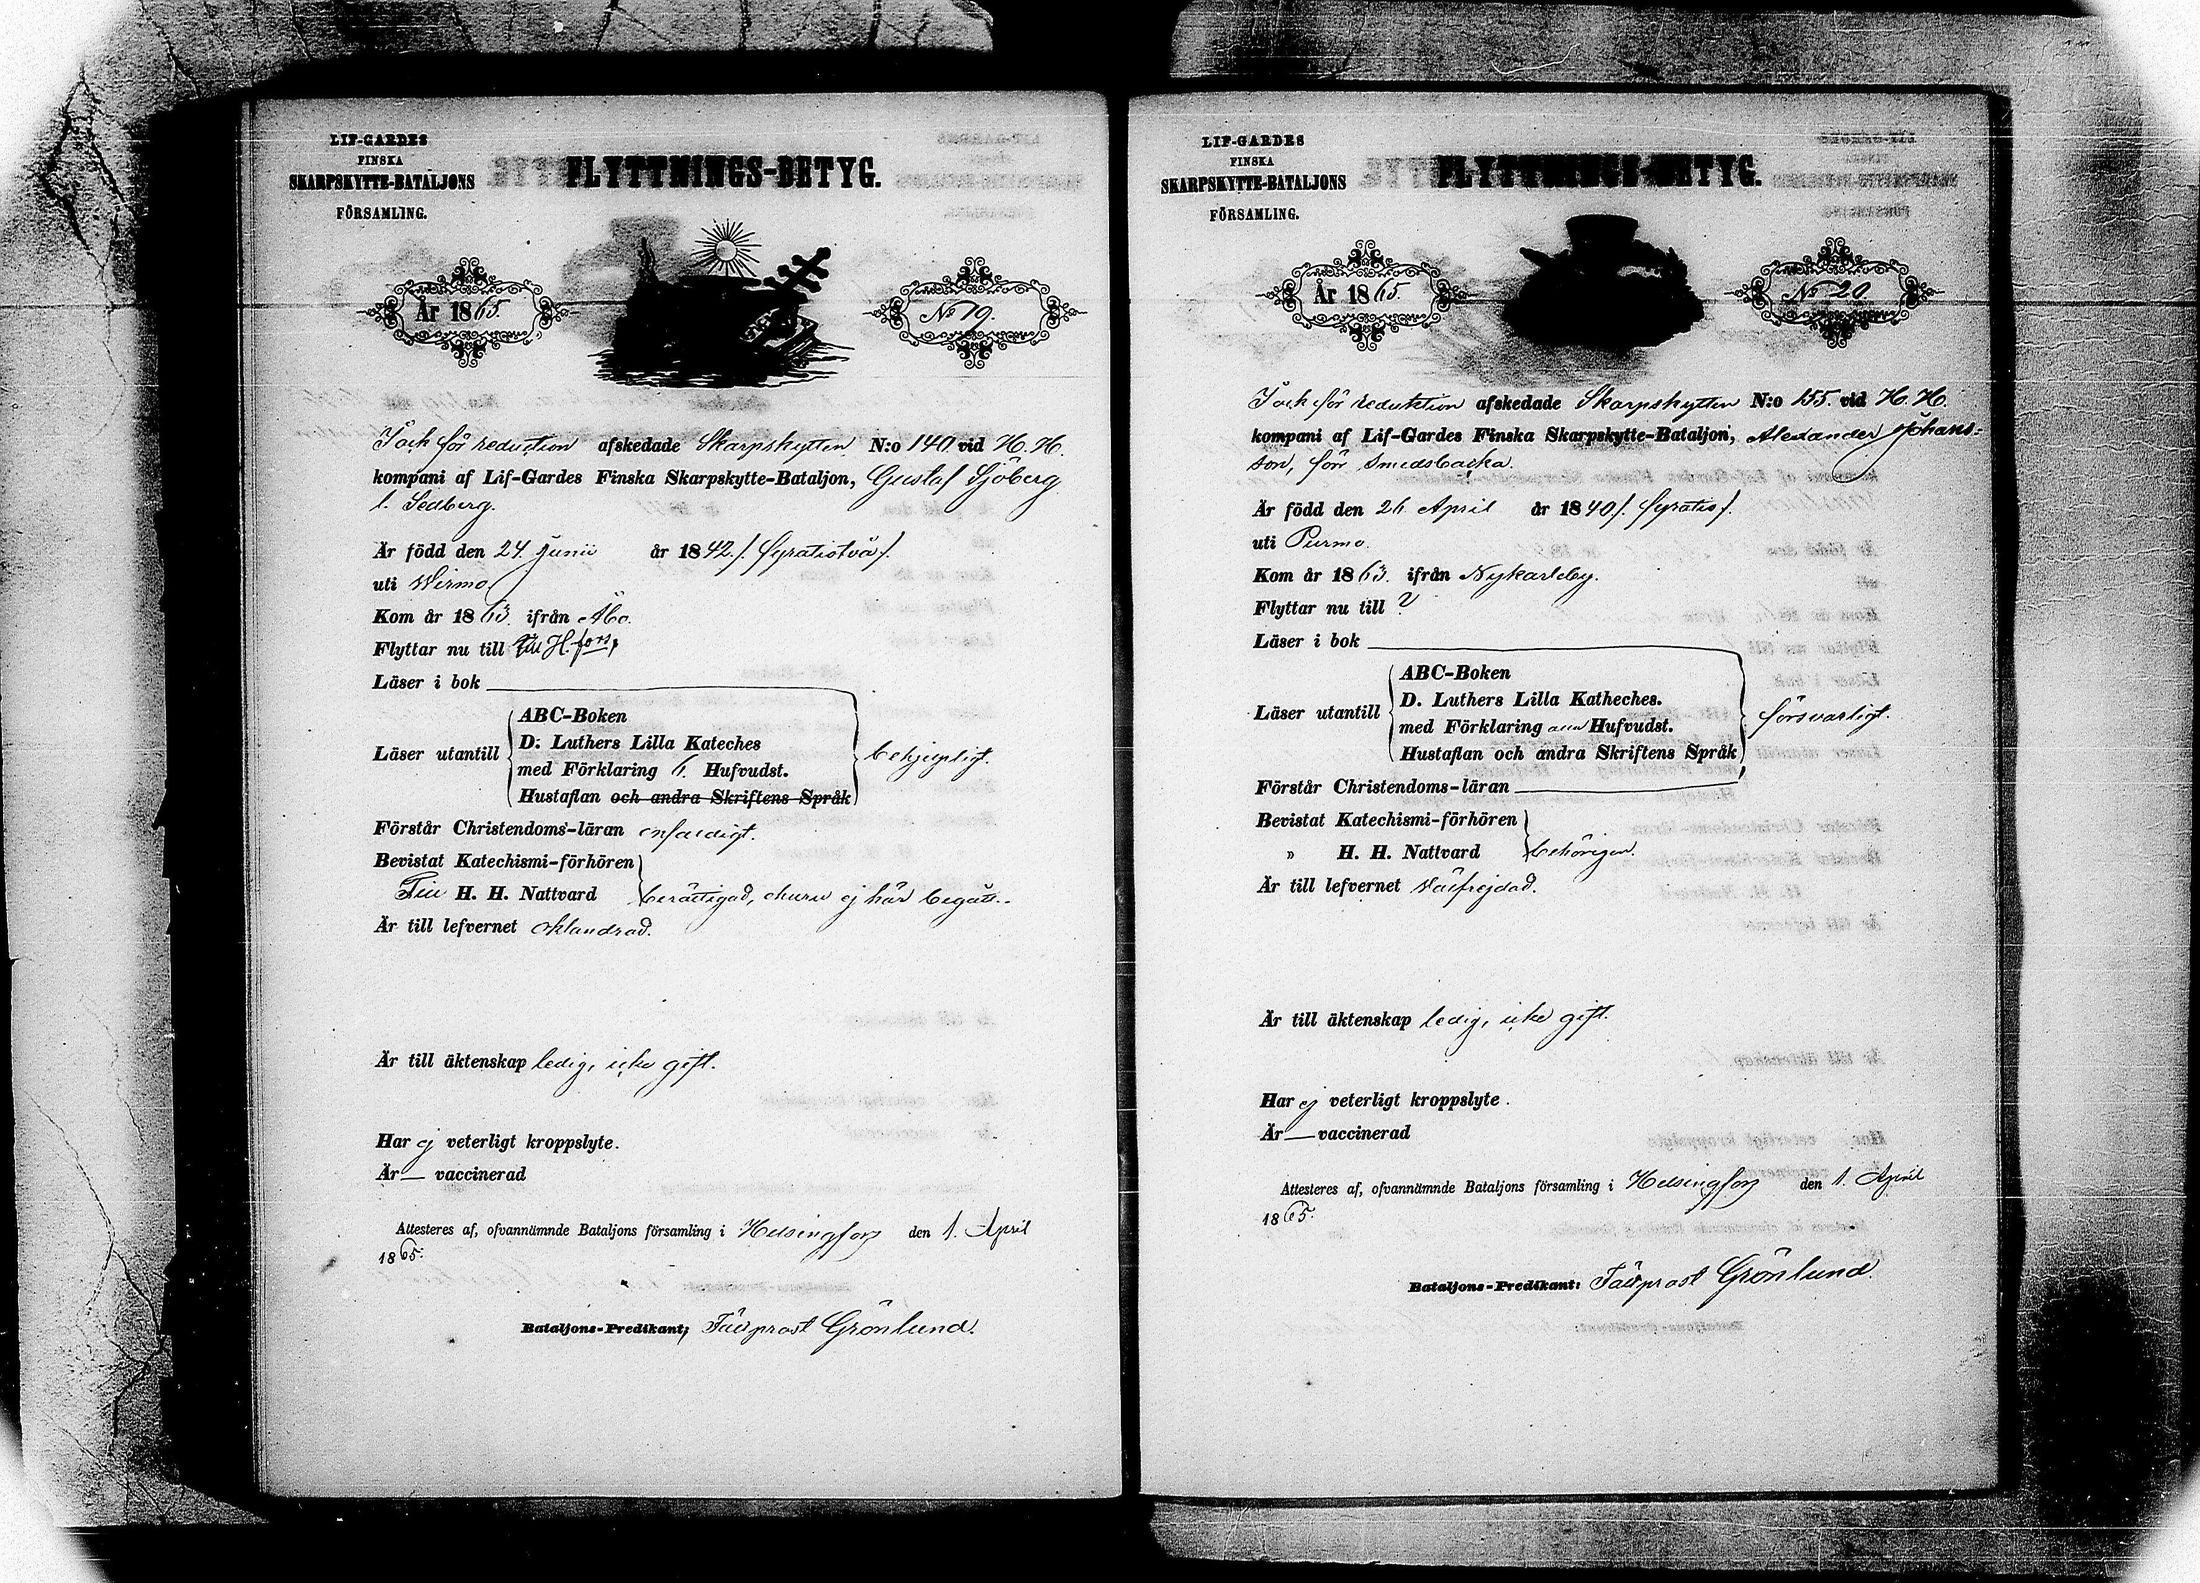 LIF-GARDES
FINSKA
SKARPSKYTTE-BATALJONS
FÖRSAMLING.
FLYTTNINGS-BETYG.
År 1865.
No 19.
för reduction afskedade Skarpskytten N:o 140 vid H. H.
kompani af Lif-Gardes Finska Skarpskytte-Bataljon, Gustaf Sjöberg
l. Sedberg.
Är född den 24 Junii år 1842 /: fyratiotvå /.
uti Wirmo
Kom år 1863 ifrån Åbo.
Flyttar nu till H.fors
Läser i bok
Läser utantill
ABC-Boken
D: Luthers Lilla Kateches
med Förklaring 6. Hufvudst.
Hustaflan och andra Skriftens Språk
behjelpligt.
Förstår Christendoms-läran enfaldigt.
Bevistat Katechismi-förhören
Till H. H. Nattvard berättigad, ehuru ej här begått.
Är till lefvernet oklandrad.
Är till äktenskap ledig, icke gift.
Har ej veterligt kroppslyte.
Är — vaccinerad
Attesteres af, ofvannämnde Bataljons församling i Helsingfors den 1. April
1865.
Bataljons-Predikant; Fältprost Grönlund.
LIF-GARDES
FINSKA
SKARPSKYTTE-BATALJONS
FÖRSAMLING.
FLYTTNINGS-BETYG.
År 1865.
No 20
för reduktion afskedade Skarpskytten N:o 155. vid H. H.
kompani af Lif-Gardes Finska Skarpskytte-Bataljon, Alexander Johans-
son, förr Smedsbacka.
Är född den 26 April år 1840 /. fyratio /.
uti Purmo.
Kom år 1863. ifrån Nykarleby.
Flyttar nu till ?
Läser i bok
Läser utantill
ABC-Boken
D. Luthers Lilla Katheches.
med Förklaring Hufvudst.
Hustaflan och andra Skriftens Språk
försvarligt.
Förstår Christendoms-läran
Bevistat Katechismi-förhören
» H. H. Nattvard behörigen.
Är till lefvernet välfrejdad.
Är till äktenskap ledig, icke gift.
Har ej veterligt kroppslyte.
Är — vaccinerad
Attesteres af, ofvannämnde Bataljons församling i Helsingfors den 1. April
1865.
Bataljons-Predikant: Fältprost Grönlund.